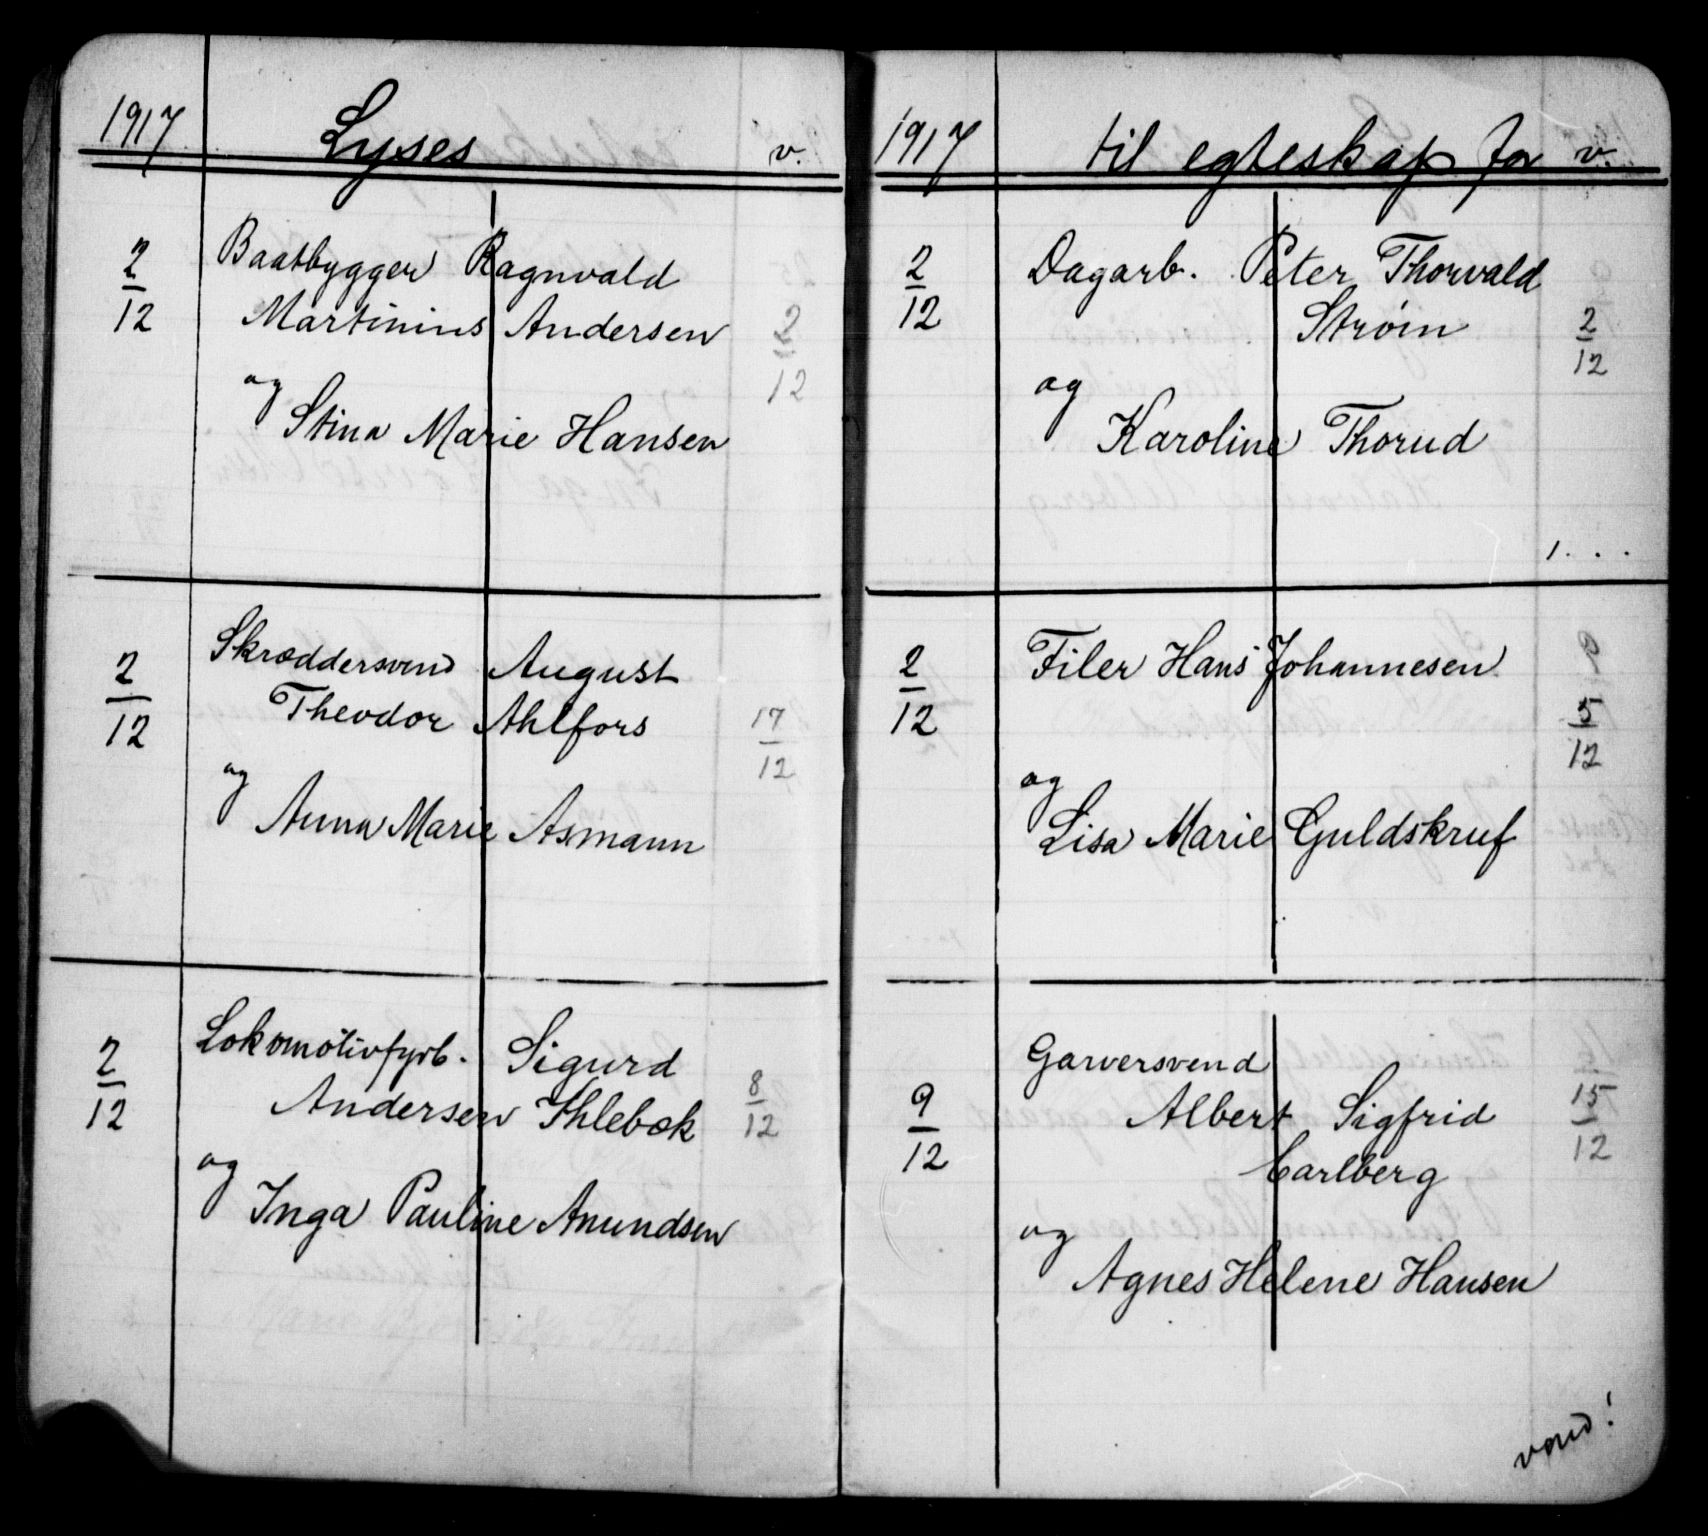 1917 Lyses v.
2/12 Baatbygger Ragnvald
Martinius Andersen 2/12
og
Stina Marie Hansen
2/12 Skræddersvend August
Theodor Ahlfors 17/12
og
Anna Marie Asmann
2/12 Lokomotivfyrb. Sigurd
Andersen Ihlebæk 8/12
og
Inga Pauline Amundsen
1917 til egteskap for v.
2/12 Dagarb. Peter Thorvald
Strøm 2/12
og
Karoline Thorud
2/12 Filer Hans Johannesen 5/12
og
Lisa Marie Guldskruf
Garversvend
9/12 Albert Sigfrid 15/12
Carlberg
og
Agnes Helene Hansen
vend!